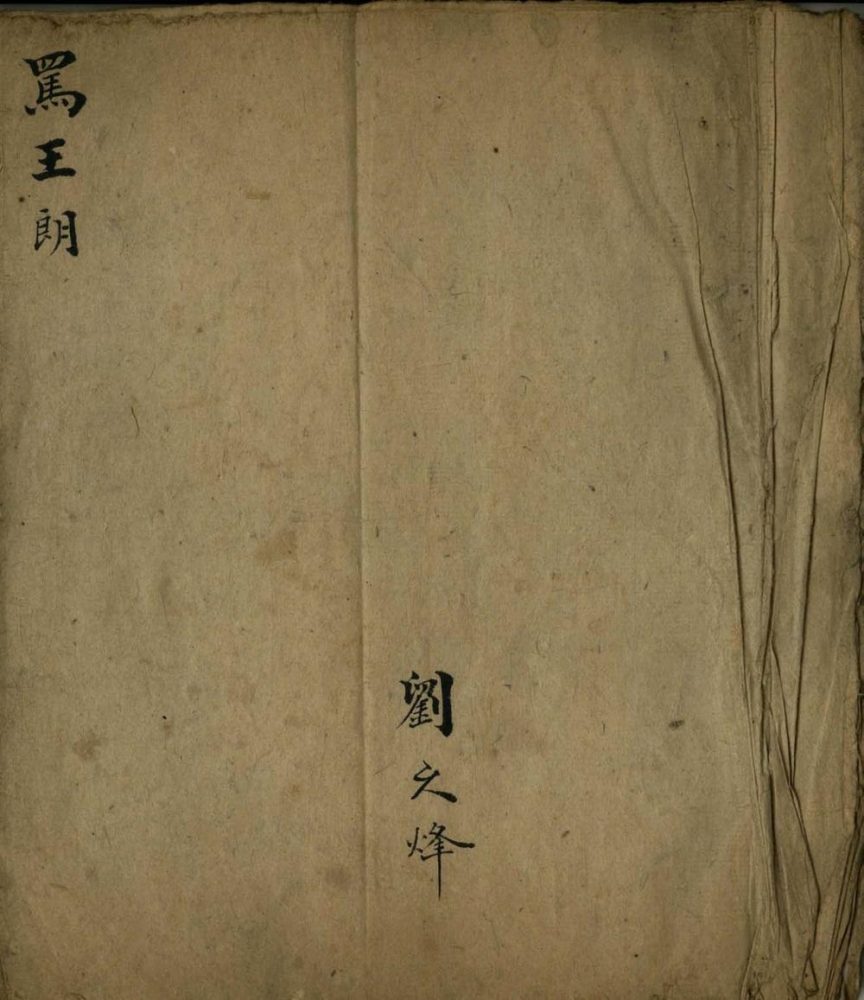 罵王朗
劉天烽